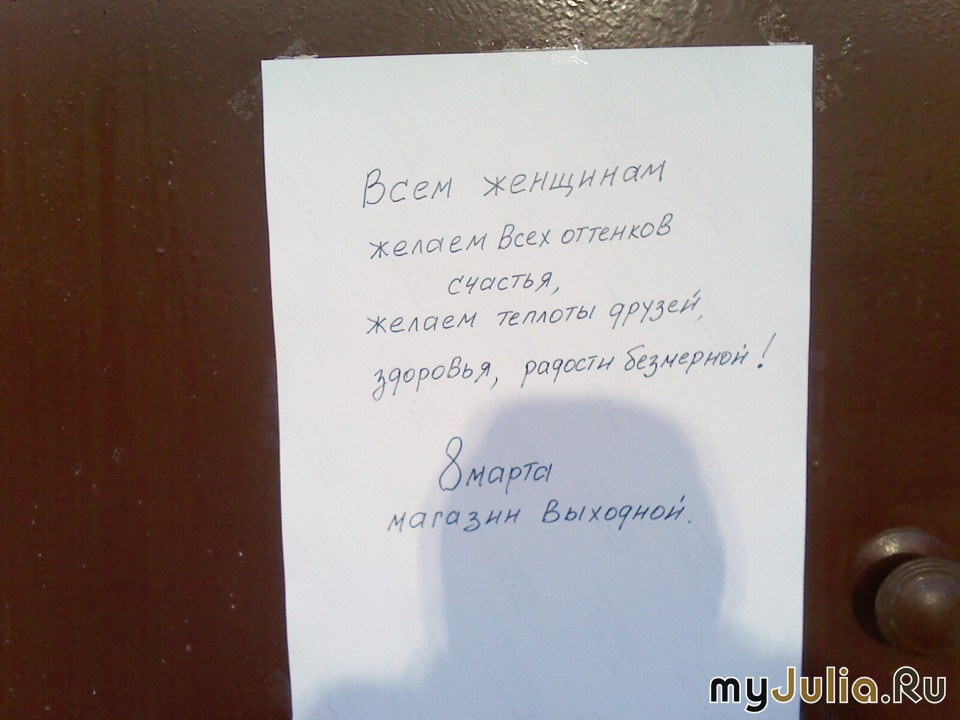 Всем женщинам
желаем всех оттенков
счастья,
желаем теплоты друзей,
здоровья, радости безмерной!
8 марта
магазин выходной.
myJulia.Ru